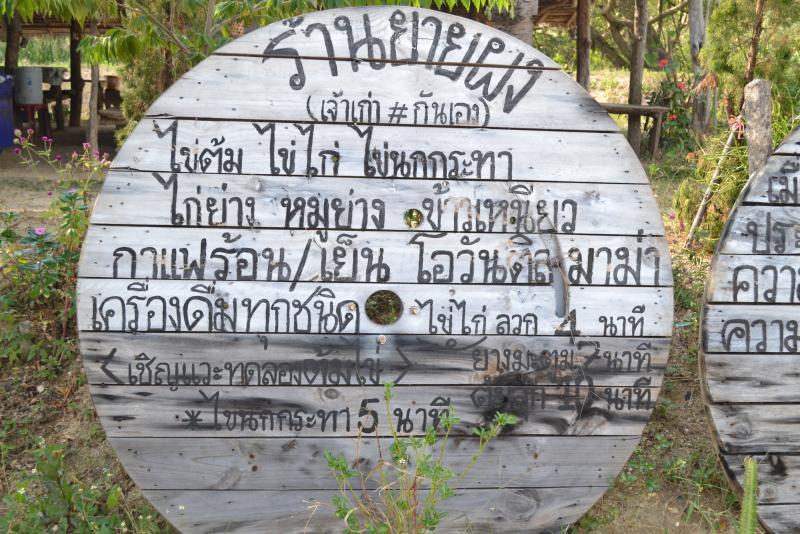 ร้านยายผง
(เจ้าเก่า # กันเอง)
ไข่ต้ม ไข่ไก่ ไข่นกกระทา
ไก่ย่าง หมูย่าง ข้าวเหนียว
กาแฟร้อน/เย็น โอวันติล มาม่า
เครื่องดื่มทุกชนิด ไข่ไก่ ลวก 4 นาที
<เชิญแวะทดลองต้มไข่> ยางมะตูม 7 นาที
ต้มสุก 10 นาที
*ไข่นกกระทา 5 นาที
ความ